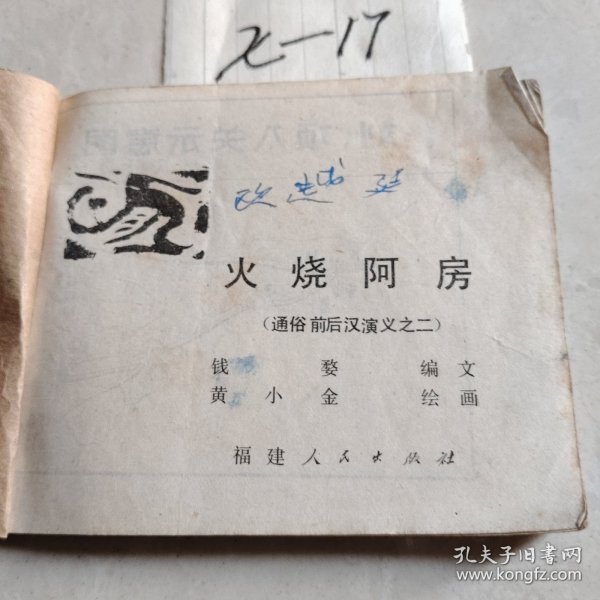 X—17
火烧阿房
（通俗前后汉演义之二）
钱 婺 编文
黄小金 绘画
福建人民出版社
孔夫子旧书网
www.kongfz.com